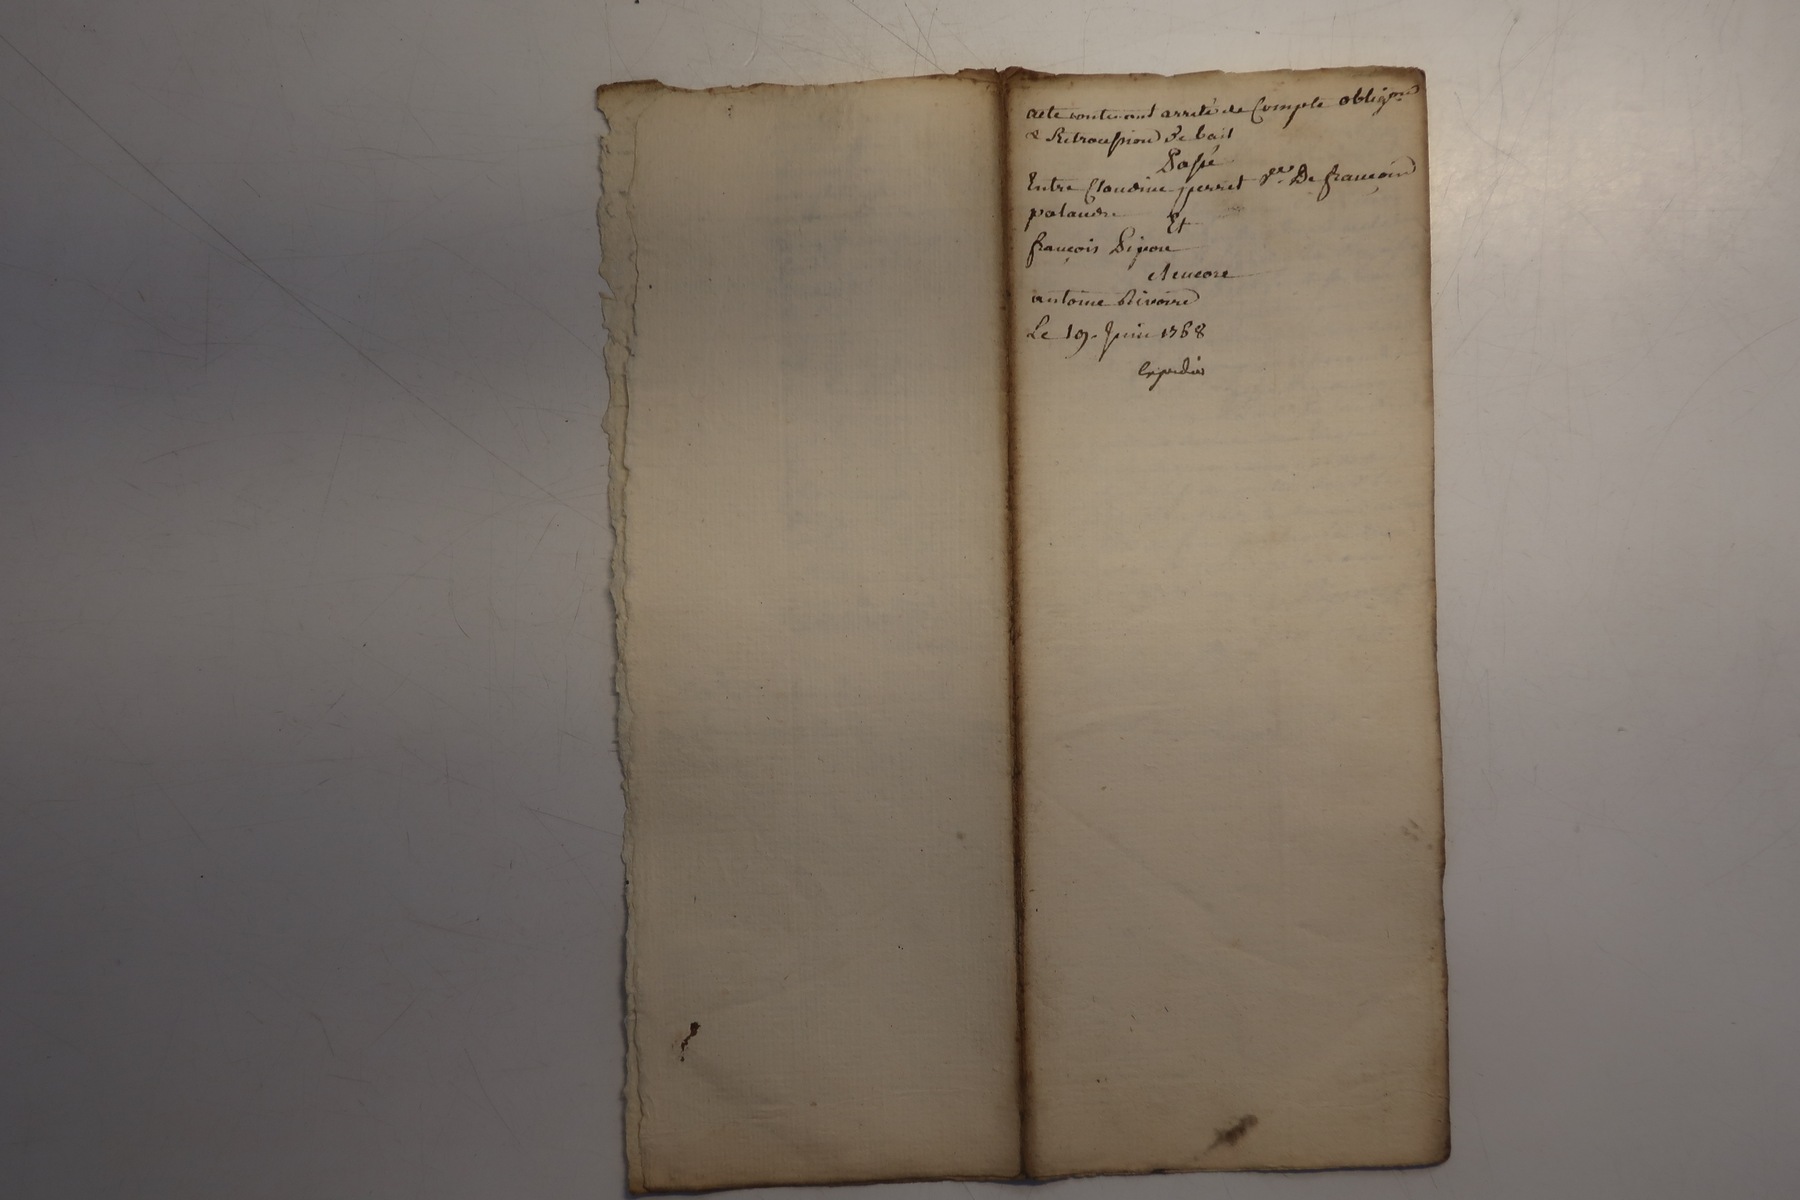 acte contenant arrêté de Compte obligon
& Retrocession de bail
Passé
Entre Claudine perret Ve De francois
palandre Et
françois Pipon
Et encore
antoine Rivoire
Le 19 Juin 1768
Expedié